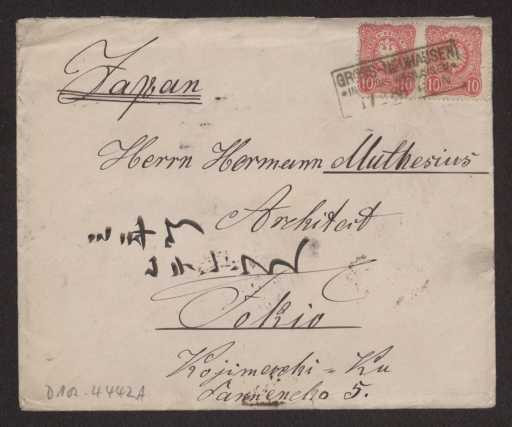 Japan
GROSS NEUHAUSEN
10 10
Herrn Hermann Muthesius
Architect
Tokio
Kojimachi-Ku
5.
D102-4442A